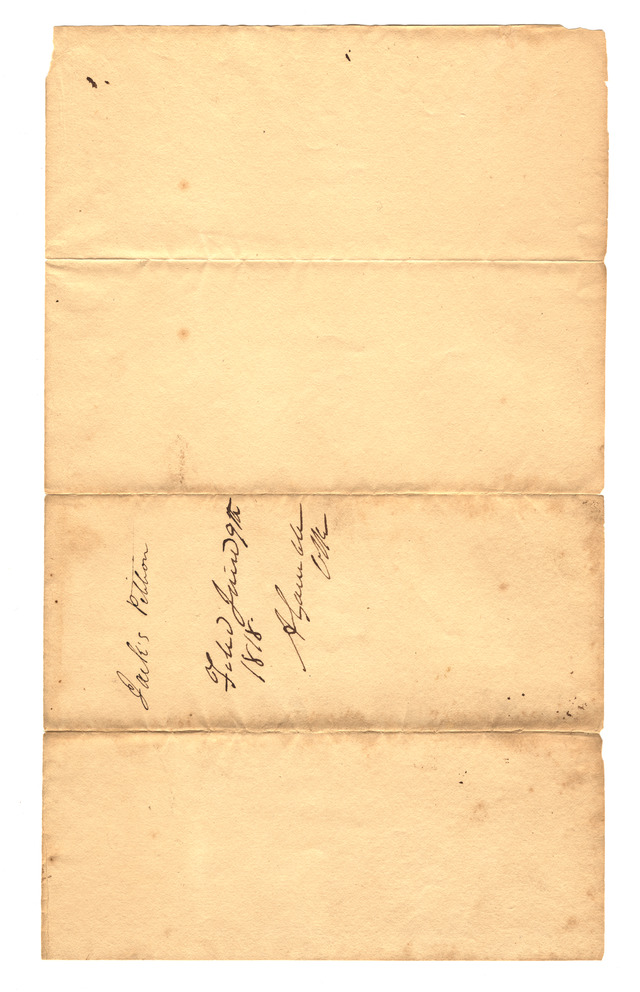 Jack's Petition
Filed June 9th
1818.
A Gamble
Clk